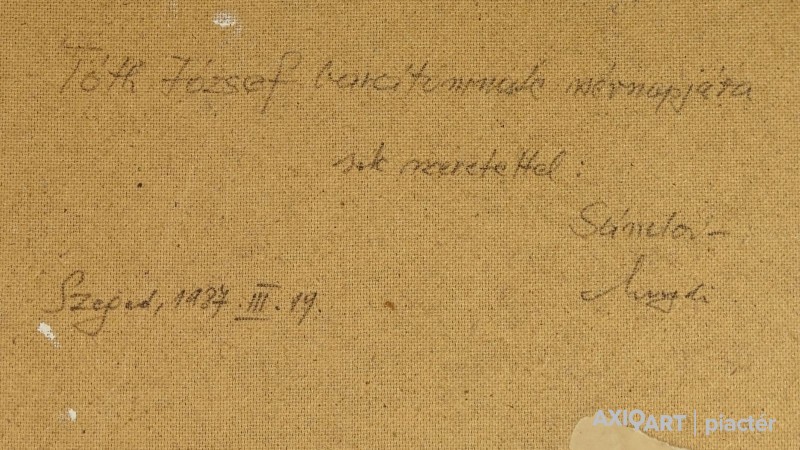 Tóth József barátunknak névnapjára
sok szeretettel:
Sándor-
Magdi
Szeged, 1987. III. 19.
AXIOART | piactér